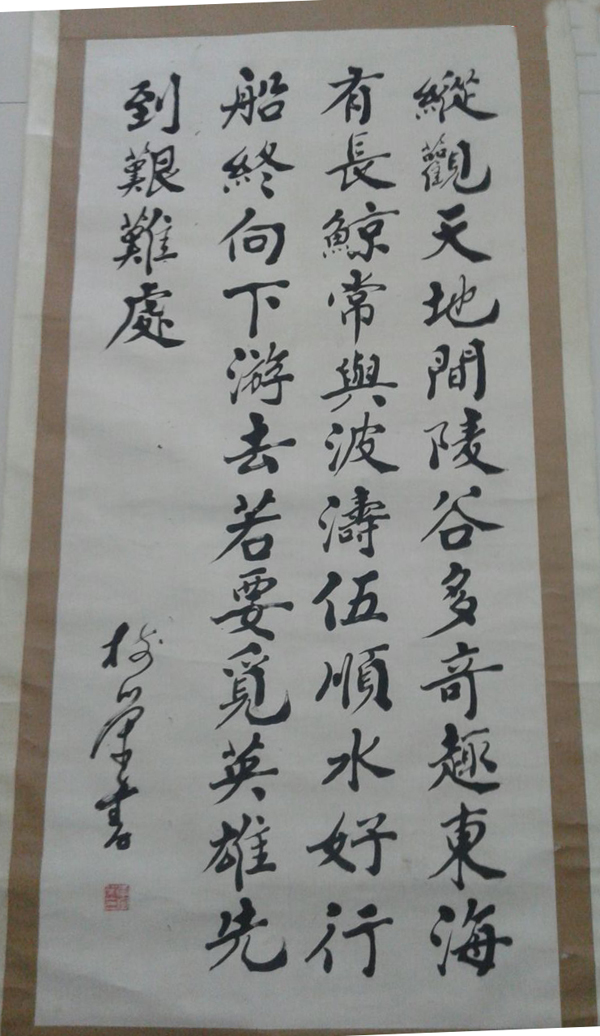 縱觀天地間陵谷多奇趣東海
有長鯨常與波濤伍順水好行
船終向下游去若要覓英雄先
到艱難處
榮書